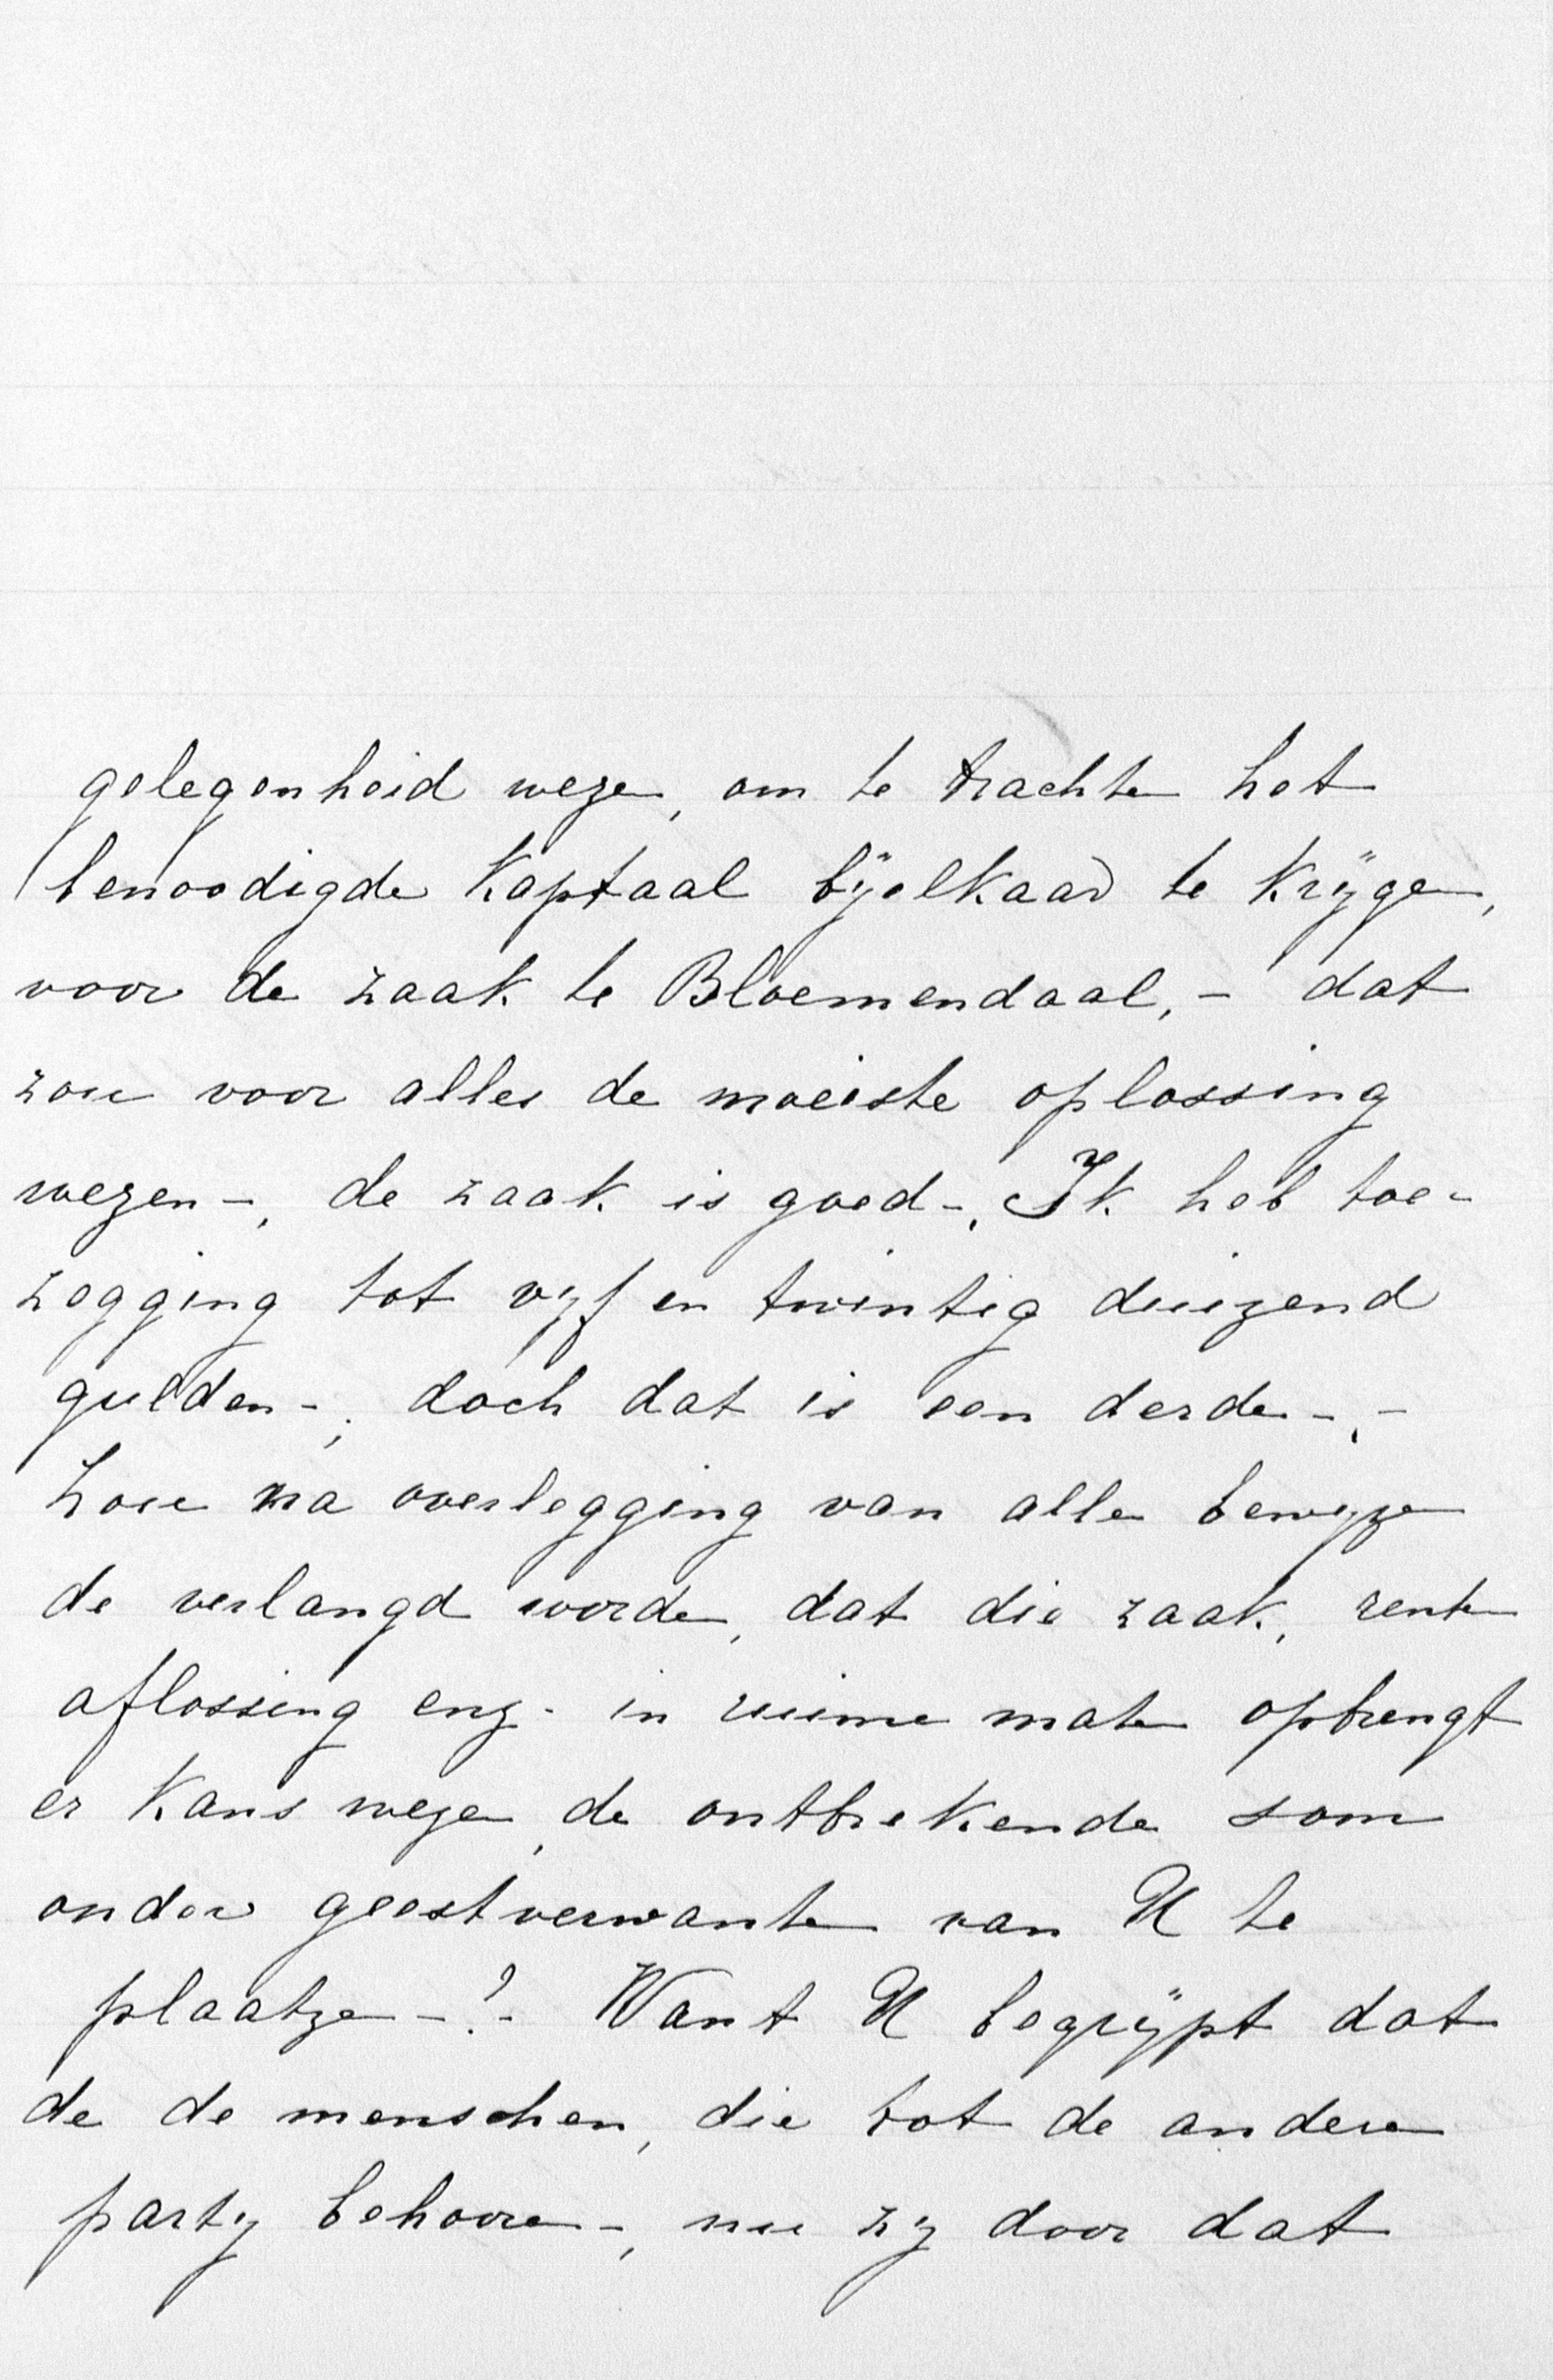 gelegenheid weze, om te trachte het
benoodigde Kaptaal bÿelkaar te Krÿge,
voor de zaak te Bloemendaal, - dat
zou voor alles de moeiste oplossing
wezen -, de zaak is goed -, Ik heb toe-
zegging tot vyf en twintig duizend
gulden -; doch dat is een derde -, -
Zou na overlegging van alle bewyze
de verlangd worde, dat die zaak, rente
aflossing enz. in ruime mate opbrengt
er Kans weze, de ontbrekende som
onder geestverwante van U te
plaatze - ? - Want U begrÿpt dat
de de menschen, die tot de andere
party behoore -, nu zy door dat